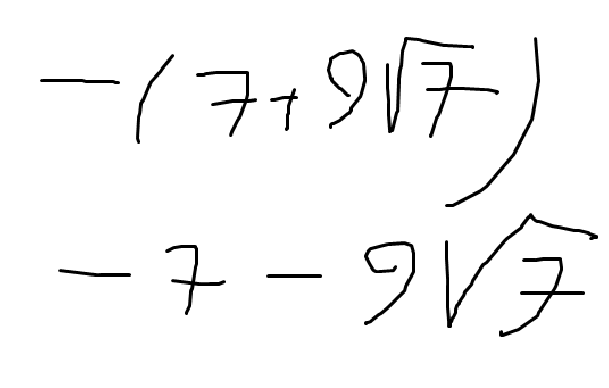 -(7+9√7)
-7-9√7